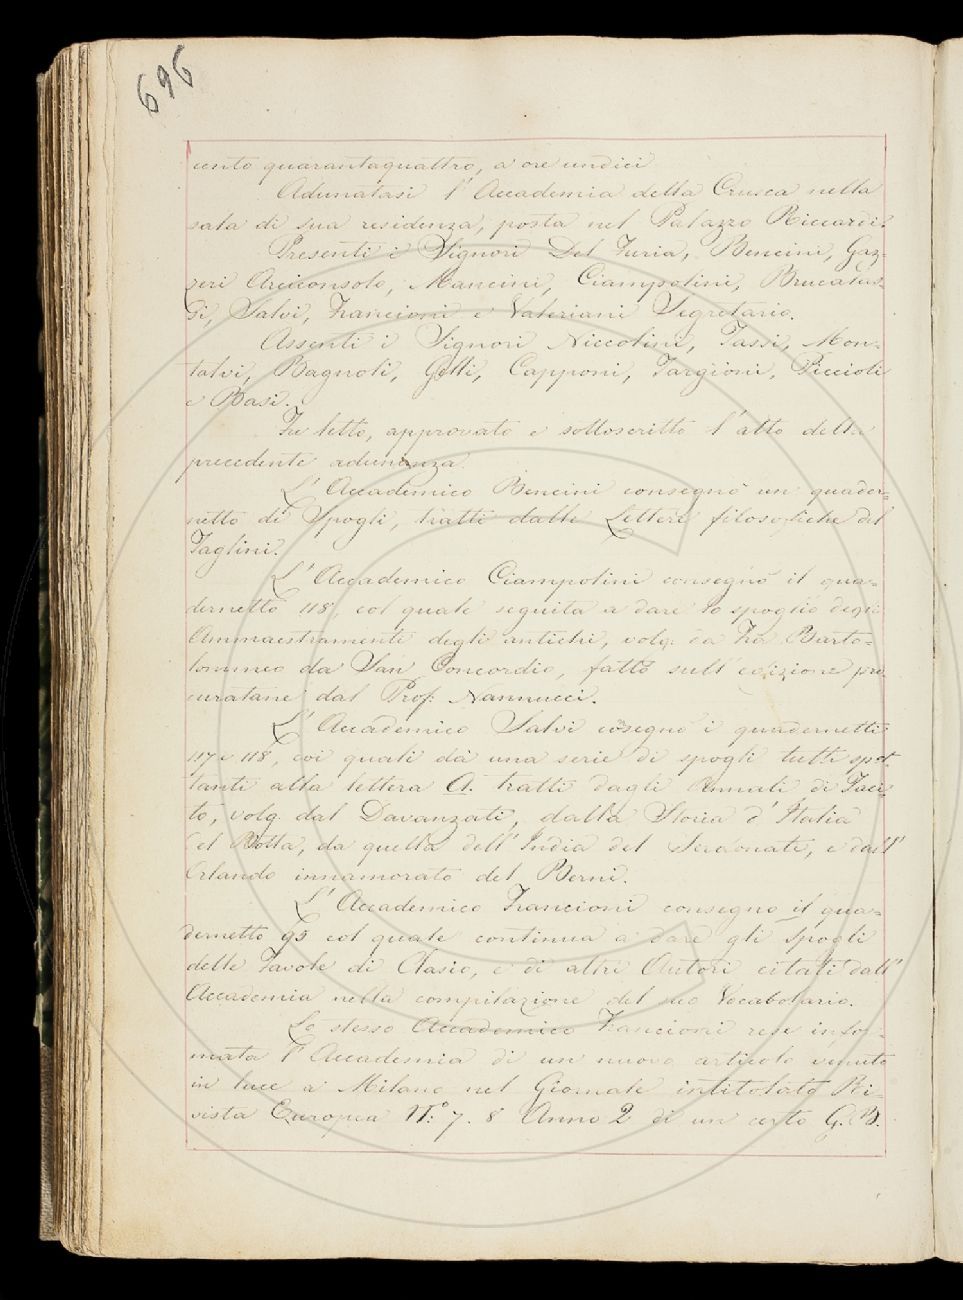 696
cento quarantaquattro, a ore undici
Adunatasi l'Accademia della Crusca nella
sala di sua residenza, posta nel Palazzo Riccardi.
Presenti i Signori Del Furia, Bencini, Gaz=
zeri Arciconsolo, Mancini, Ciampolini, Brucalas=
si, Salvi, Francioni e Valeriani Segretario.
Assenti i Signori Niccolini, Tassi, Mon=
talvi, Bagnoli, Gelli, Capponi, Targioni, Piccioli
e Basi.
Fu letto, approvato e sottoscritto l'atto della
precedente adunanza.
L'Accademico Bencini consegnò un quader=
netto di Spogli, tratti dalle Lettere filosofiche del
Taglini.
L'Accademico Ciampolini consegnò il qua=
dernetto 118. col quale seguita a dare lo spoglio degli
Ammaestramenti degli antichi, volg. da Fra Barto=
lommeo da San Concordio, fatto sull'edizione pro
curatane dal Prof. Nannucci.
L'Accademico Salvi cōsegnò i quadernetti
117 e 118, coi quali dà una serie di spogli tutti spet=
tanti alla lettera A. tratti dagli Annali di Taci=
to, volg. dal Davanzati, dalla Storia d'Italia
del Botta, da quella dell'India del Serdonati, e dall'
Orlando innamorato del Berni.
L'Accademico Francioni consegnò il qua=
dernetto 95 col quale continua a dare gli Spogli
delle Favole di Clasio, e di altri Autori citati dall'
Accademia nella compilazione del suo Vocabolario.
Lo stesso Accademico Francioni rese infor=
mata l'Accademia di un nuovo articolo venuto
in luce a Milano nel Giornale intitolato Ri=
vista Europea N.° 7. 8 Anno 2 di un certo G. B.